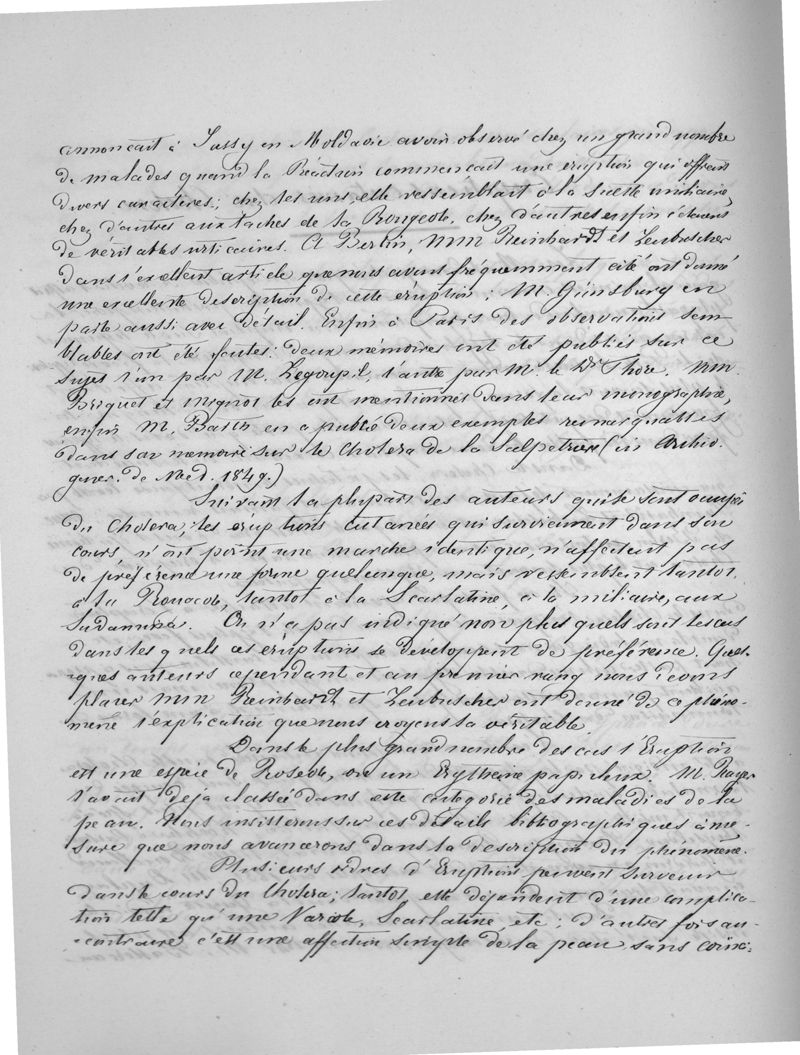 annoncait à Jassy en Moldavie avoir observé chez un grand nombre
de malades quand la Réaction commencait une éruption qui offrait
divers caractères; chez les uns, elle ressemblait à la suette miliaire,
chez d'autres aux taches de la Rougeole, chez d'autres enfin c'étaient
de véritables urticaires. A Berlin, MM Reinhardt et Leubuscher
dans l'excellent article que nous avons fréquemment cité ont donné
une excellente description de cette éruption; M. Günsburg en
parle aussi avec détail. Enfin à Paris des observations sem-
blables ont été faites: deux mémoires ont été publiés sur ce
sujet l'un par M. Legoupil, l'autre par M. le Dr Thore. MM.
Briquet et Mignot les ont mentionnés dans leur monographie,
enfin M. Barth en a publié deux exemples remarquables
dans son mémoire sur le Cholera de la Salpetrière (in Archiv.
gener. de Med. 1849.)
Suivant la plupart des auteurs qui se sont occupés
du Cholera, les éruptions cutanées qui surviennent dans son
cours n'ont point une marche identique, n'affectent pas
de préférence une forme quelconque, mais ressemblent tantot
à la Rougeole, tantot à la Scarlatine, à la miliaire, aux
Sudamina. On n'a pas indiqué non plus quels sont les cas
dans les quels ces éruptions se développent de préférence. Quel-
ques auteurs cependant et au premier rang nous devons
placer MM Reinhardt et Leubuscher ont donné de ce phéno-
mène l'explication que nous croyons la véritable.
Dans le plus grand nombre des cas l'Eruption
est une espèce de Roseole, ou un Erythème papuleux. M. Rayer
l'avait déja classée dans cette catégorie des maladies de la
peau. Nous insisterons sur ces détails bibliographiques à me-
sure que nous avancerons dans la description du phénomène.
Plusieurs ordres d'Eruption peuvent survenir
dans le cours du Cholera; tantot elle dépendent d'une complica-
tion telle qu'une Variole, Scarlatine, etc; d'autres fois au-
contraire c'est une affection simple de la peau sans coïnci-